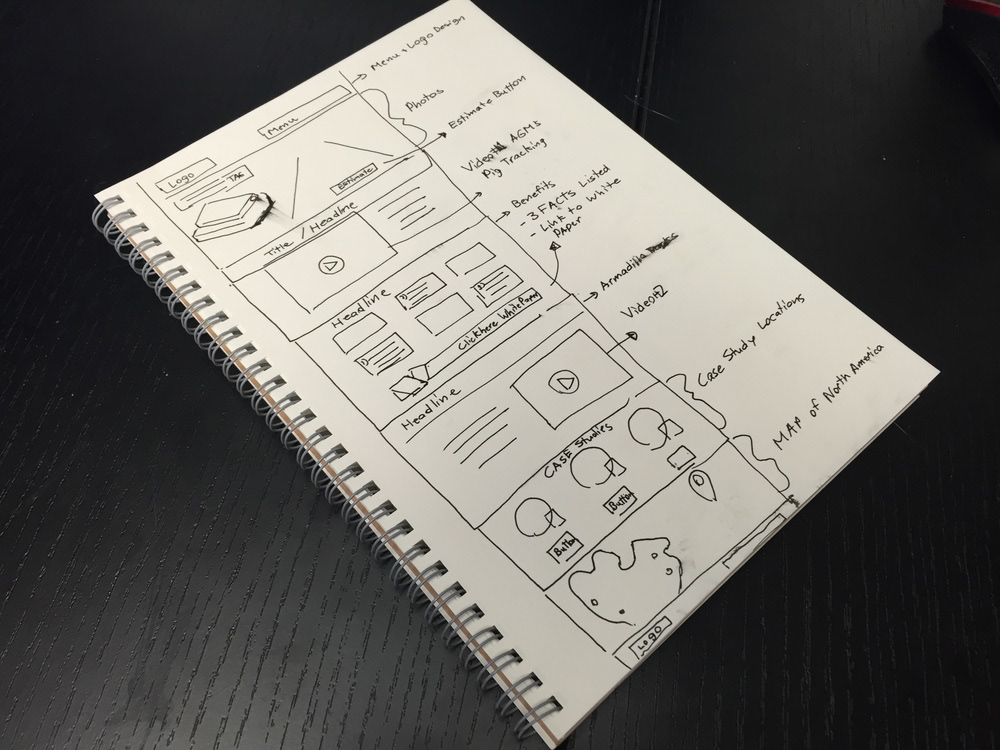 Menu + Logo Design
Photos
Estimate Button
Video#1 AGMs
Pig Tracking
Benefits
- 3 FACTs Listed
- Link to white
PAPER
Armadilla
Video#2
Case Study Locations
MAP of North America
Menu
Logo
TAG
Estimate
Title / Headline
Headline
Click here White Paper
Headline
CASE Studies
Button
Button
Logo